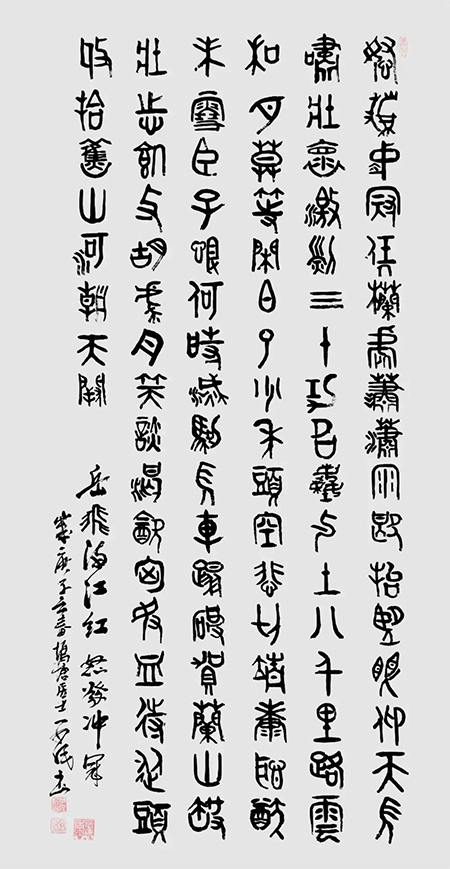 怒髮衝冠凭欄處蕭瀟雨歇抬望眼仰天長
嘯壯懷激烈三十功名塵与土八千里路雲
和月莫等閑白了少年頭空悲切靖康恥猶
未雪臣子恨何時滅駕長車蹋破賀蘭山缺
壯志飢餐胡虜肉笑談渴飲匈奴血待從頭
收拾舊山河朝天闕
岳飛滿江紅怒發冲冠
歲庚子立春居士